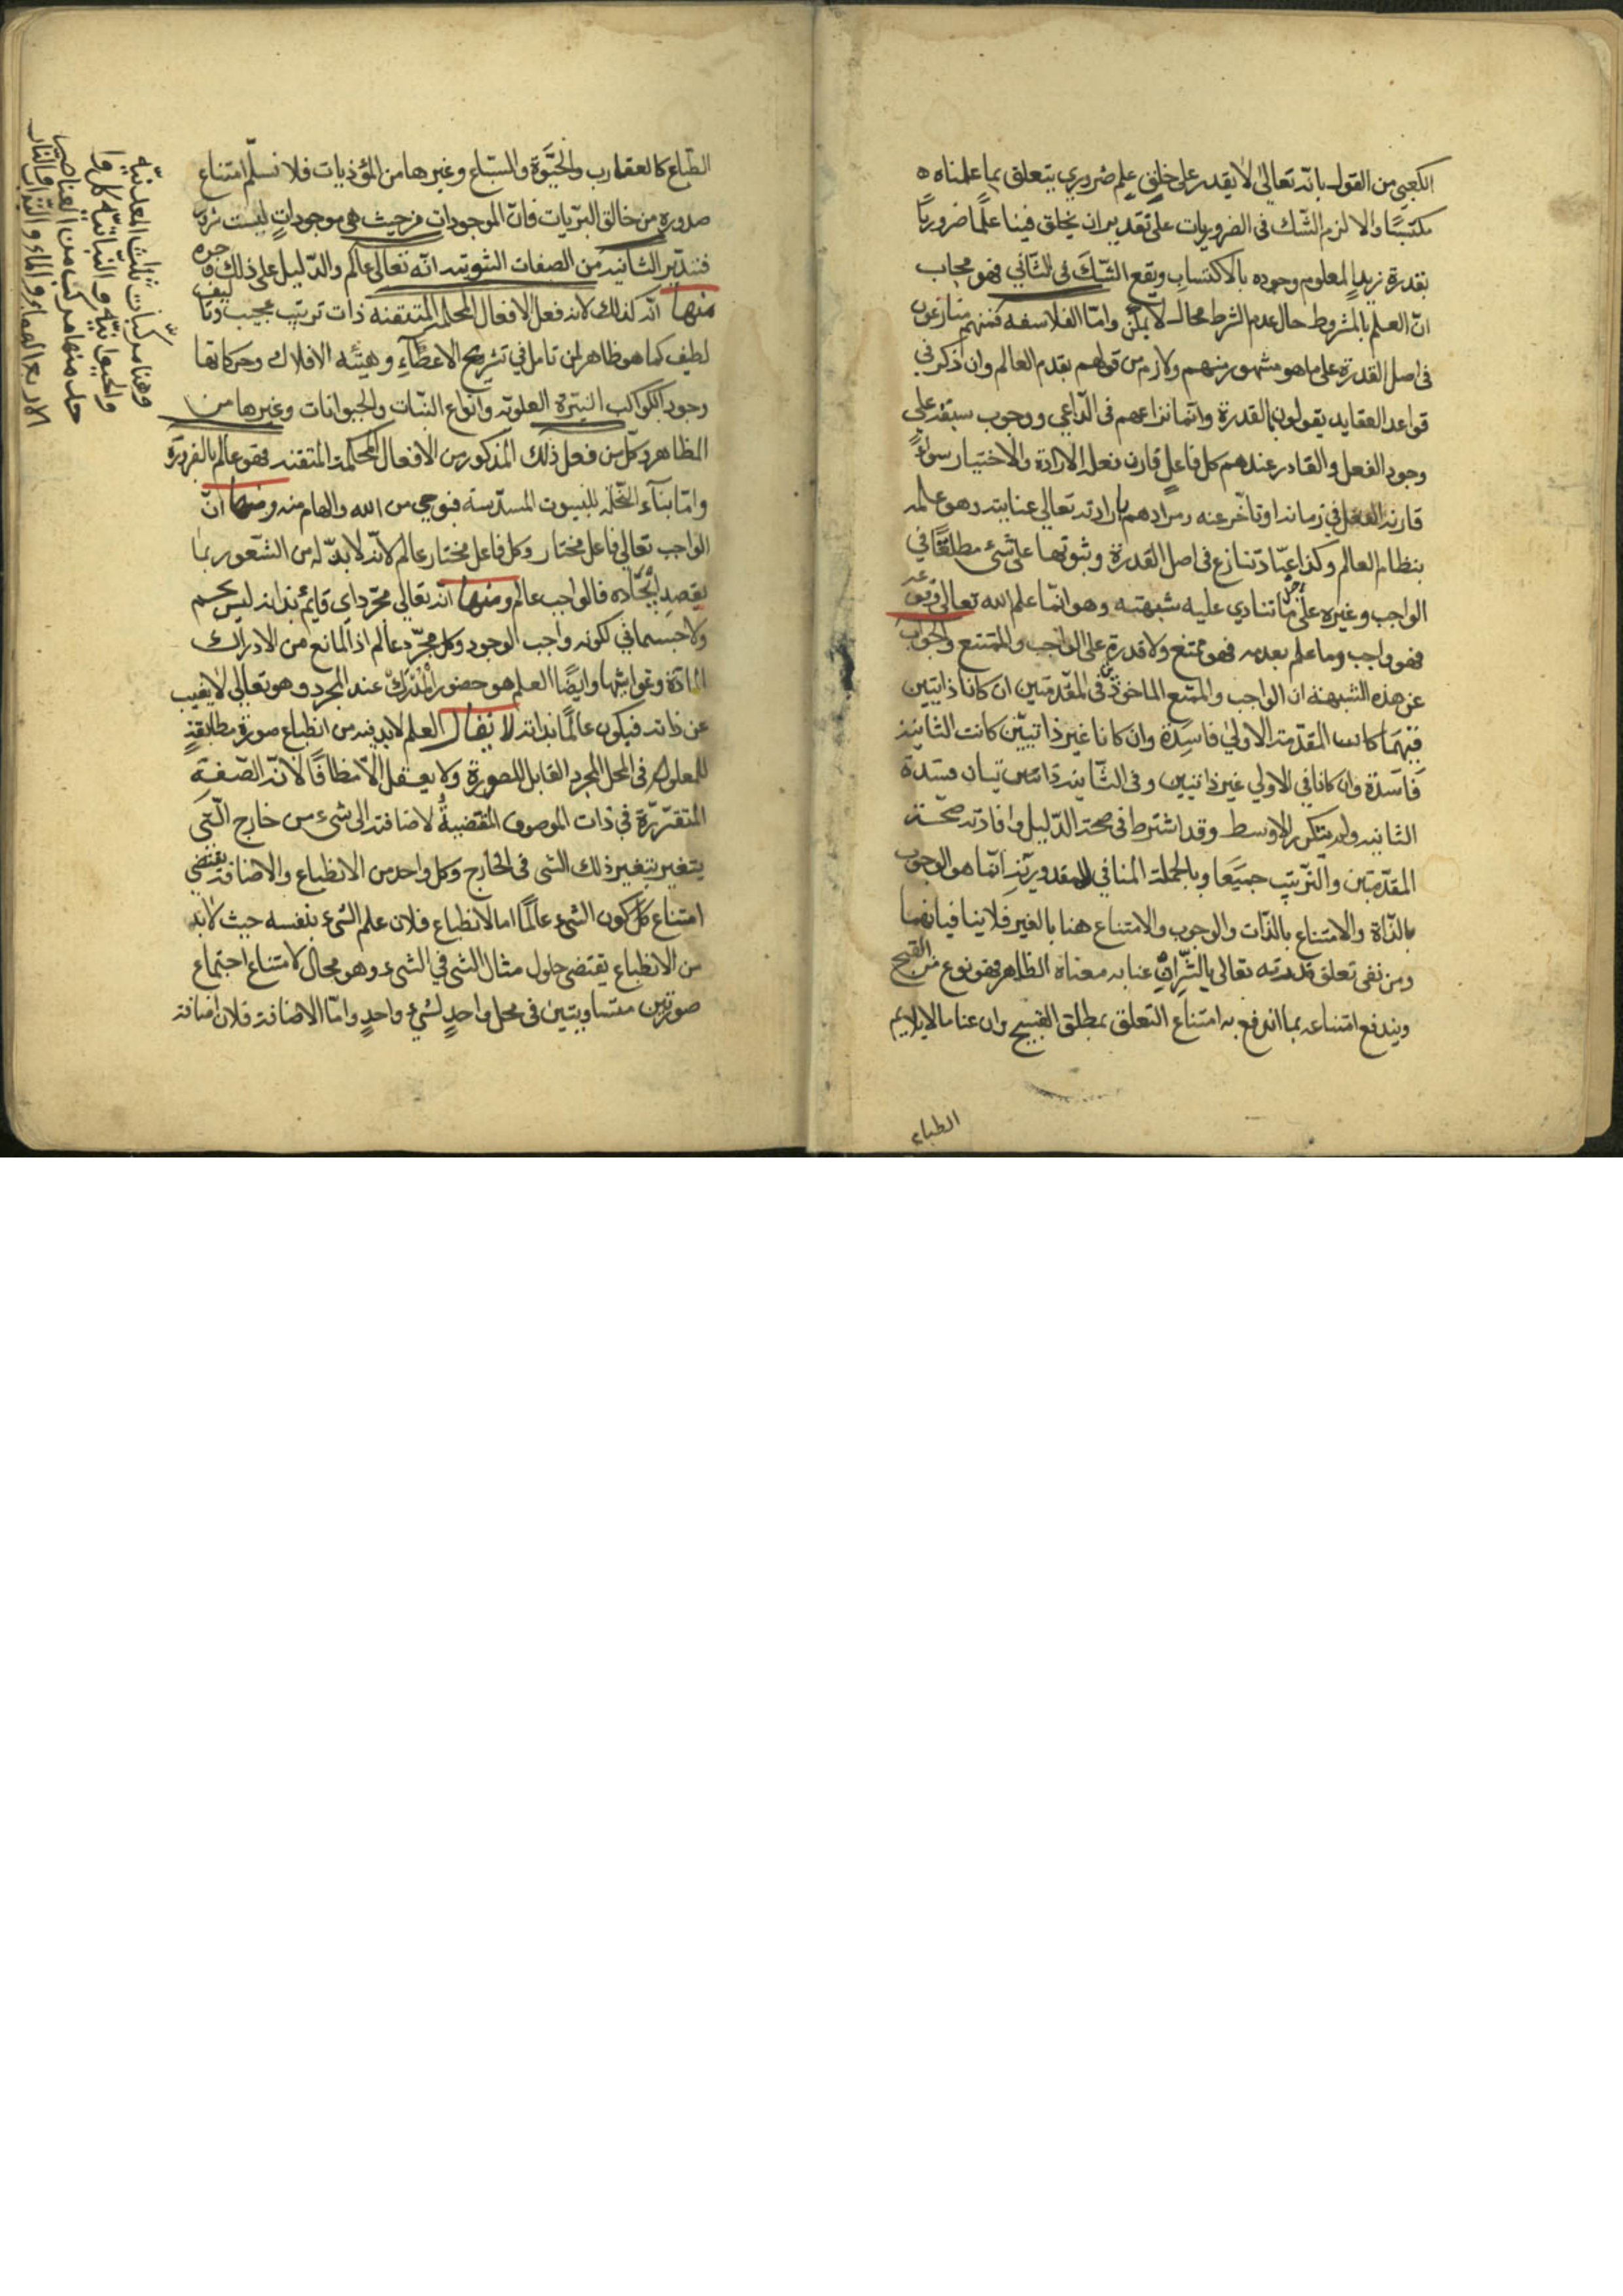 الكعبي من القول بانه تعالى لا يقدر على خلق علم ضروري يتعلق بما علمناه
مكتسبًا والا لزم الشك فى الضروريات على تقدير ان يخلق فينا علمًا ضروريًا
بقدرة زيد المعلوم وجوده بالاكتساب ويقع الشك فى الثاني فهو مجاب
انّ العلم بالمشروط حال عدم الشرط محال لا يمكن وامّا الفلاسفه فمنهم منازعون
فى اصل القدرة على ما هو مشهور منهم ولازم من قولهم بقدم العالم وان ذكر في
قواعد العقايد يقولون بالقدرة وانما نزاعهم فى الداعي ووجوب سبقه على
وجود الفعل والقادر عندهم كل فاعل قارن فعله الارادة والاختيار سواء
قارنه الفعل في زمانه او تأخر عنه ومرادهم بارادته تعالى عنايته وهو علمه
بنظام العالم وكذا عبّاد تنازع فى اصل القدرة وثبوتها على شئ مطلقًا في
الواجب وغيره على ما تنادي عليه شبهته وهو انّما علم الله تعالى وقوعه
فهو واجب وما علم بعدمه فهو ممتنع ولا قدرة على الواجب والممتنع والجواب
عن هذه الشبهة ان الواجب والممتنع الماخوذين فى المقدمتين ان كانا ذاتيين
فيهما كانت المقدمة الاولى فاسدة وان كانا غير ذاتيين كانت الثانية
فاسدة وان كانا في الاولي غير ذاتيين وفى الثانية ذاتيين فسدة
الثانيه ولم يتكرر الاوسط وقد اشترط فى صحة الدليل وافادته صحّة
المقدمتين والترتيب جميعا وبالجملة المنافي للمقدورية انما هو الوجوب
بالذات والامتناع بالذات والوجوب والامتناع هنا بالغير فلا ينافيانها
ومن نفى تعلق قدرته تعالى بالشر ان عنا به معناه الظاهر فهو نوع من القبيح
ويندفع امتناعه بما اندفع به امتناع التعلق بمطلق القبيح وان عنا ما لا يلايم
الطباع
الطباع كالعقارب والحيّوة والسباع وغيرها من المؤذيات فلا نسلّم امتناع
صدوره من خالق البريات فانّ الموجودات من حيث هي موجودات ليست شرور
فتدبّر الثانية من الصفات الثبوتيه انه تعالى عالم والدليل على ذلك وجوه
منها انّه كذلك لانه فعل الافعال المحكمة المتقنه ذات ترتيب عجيب وتاليف
لطيف كما هو ظاهر لمن تامل في تشريح الاعضاء وهيئه الافلاك وحركاتها
وجود الكواكب النيّرة العلوية وأنواع النبات والحيوانات وغيرها من
المظاهر وكل من فعل ذلك المذكور من الافعال المحكمة المتقنه فهو عالم بالضرورة
وامّا بناء النحلة للبيوت المسدسة فبوحي من الله والهام منه ومنها انّ
الواجب تعالي فاعل مختار وكل فاعل مختار عالم لانّه لا بدّ له من الشعور بما
يقصد ايجاده فالواجب عالم ومنها انّه تعالي مجرّد اي قايم بذاته ليس بجسم
ولا جسماني لكونه واجب الوجود وكل مجرّد عالم اذ المانع من الادراك
المادّة وغواشيها وايضًا العلم هو حضور المدرك عند المجرد وهو تعالي لا يغيب
عن ذاته فيكون عالمًا بذاته لا يقال العلم لا بد فيه من انطباع صورة مطابقة
للمعلوم فى المحل المجرد القابل للصورة ولا يعقل الّا مضافًا لانه الصفة
المتقررة في ذات الموصوف المقتضية لاضافته الى شيء من خارج التي
يتغير بتغير ذلك الشى فى الخارج وكل واحد من الانطباع والاضافة يقتضي
امتناع كل كون الشيء عالمًا اما الانطباع فلان علم الشيء بنفسه حيث لا بد
من الانطباع يقتضى حلول مثال الشى في الشيء وهو محال لامتناع اجتماع
صورتين متساويتين فى محل واحدٍ لشيء واحدٍ وامّا الاضافة فلان اضافة
وهنا مركبّات ثلث المعدنيّه
والحيوانيّه والنّباتيّه كل وا
حد منها مركب من العناصر
الاربعه الهواء والماء والتراب والنار